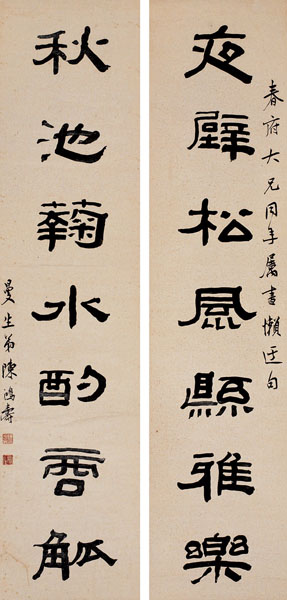 春府大兄同年屬書懶迂句
夜壁松風縣雅樂
秋池蘜水酌雲觚
曼生弟陳鴻壽